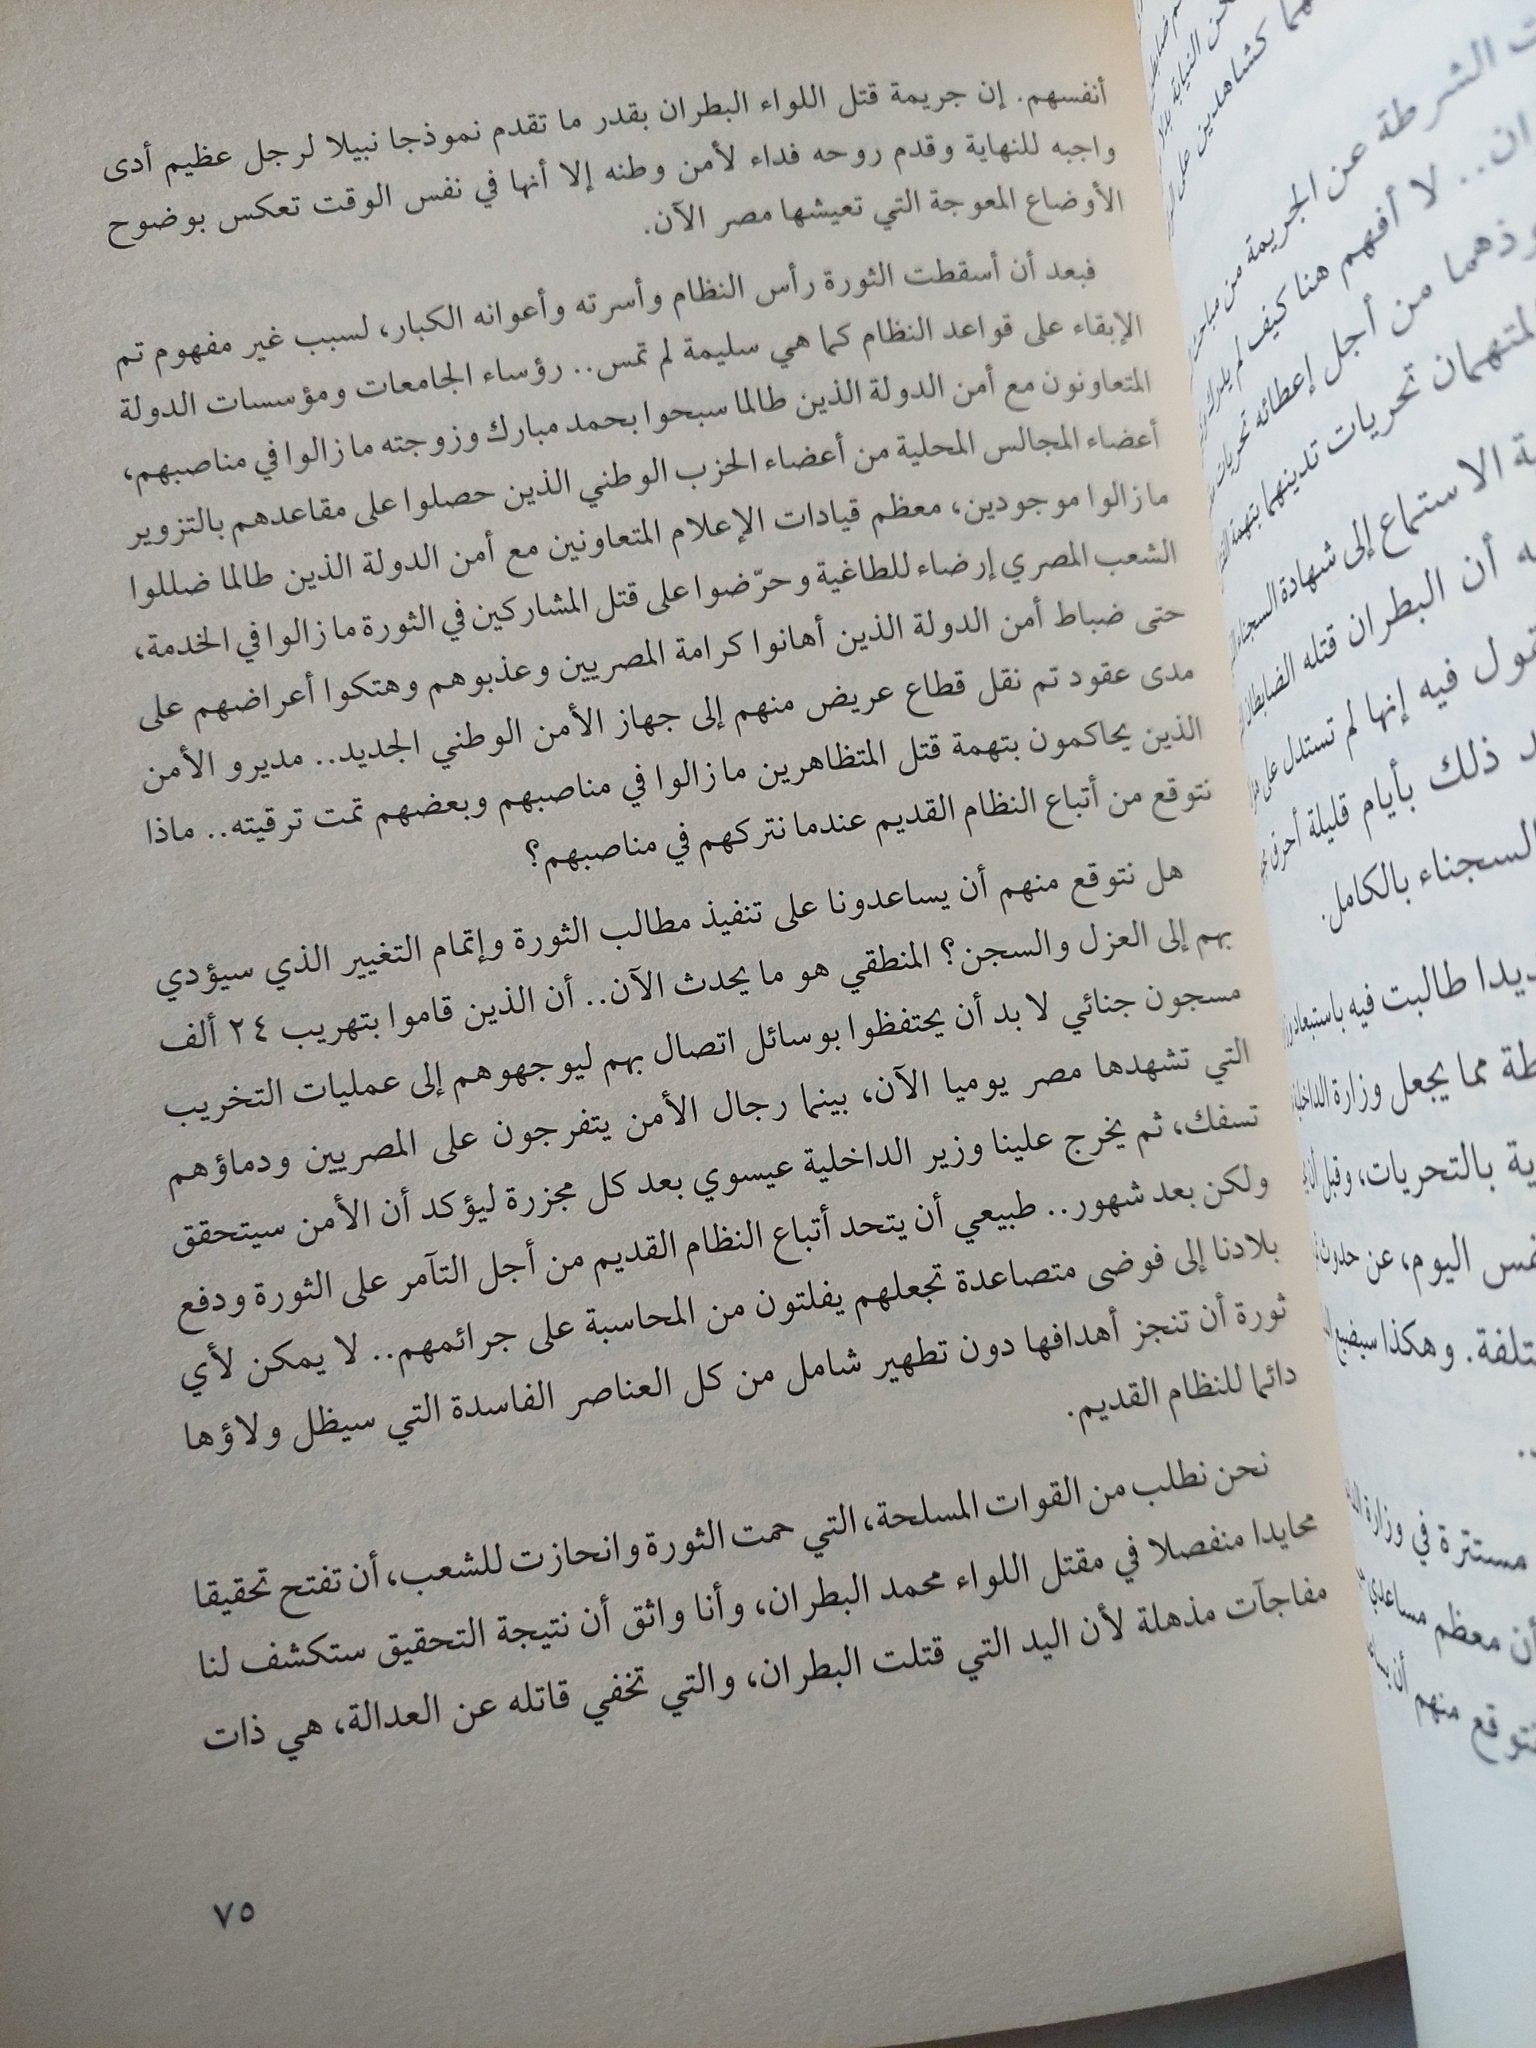 أنفسهم. إن جريمة قتل اللواء البطران بقدر ما تقدم نموذجا نبيلا لرجل عظيم أدى
واجبه للنهاية وقدم روحه فداء لأمن وطنه إلا أنها في نفس الوقت تعكس بوضوح
الأوضاع المعوجة التي تعيشها مصر الآن.
فبعد أن أسقطت الثورة رأس النظام وأسرته وأعوانه الكبار، لسبب غير مفهوم تم
الإبقاء على قواعد النظام كما هي سليمة لم تمس.. رؤساء الجامعات ومؤسسات الدولة
المتعاونون مع أمن الدولة الذين طالما سبحوا بحمد مبارك وزوجته ما زالوا في مناصبهم،
أعضاء المجالس المحلية من أعضاء الحزب الوطني الذين حصلوا على مقاعدهم بالتزوير
ما زالوا موجودين، معظم قيادات الإعلام المتعاونين مع أمن الدولة الذين طالما ضللوا
الشعب المصري إرضاء للطاغية وحرّضوا على قتل المشاركين في الثورة ما زالوا في الخدمة،
حتى ضباط أمن الدولة الذين أهانوا كرامة المصريين وعذبوهم وهتكوا أعراضهم على
مدى عقود تم نقل قطاع عريض منهم إلى جهاز الأمن الوطني الجديد.. مديرو الأمن
الذين يحاكمون بتهمة قتل المتظاهرين ما زالوا في مناصبهم وبعضهم تمت ترقيته.. ماذا
نتوقع من أتباع النظام القديم عندما نتركهم في مناصبهم؟
هل نتوقع منهم أن يساعدونا على تنفيذ مطالب الثورة وإتمام التغيير الذي سيؤدي
بهم إلى العزل والسجن؟ المنطقي هو ما يحدث الآن.. أن الذين قاموا بتهريب ٢٤ ألف
مسجون جنائي لا بد أن يحتفظوا بوسائل اتصال بهم ليوجهوهم إلى عمليات التخريب
التي تشهدها مصر يوميا الآن، بينما رجال الأمن يتفرجون على المصريين ودماؤهم
تسفك، ثم يخرج علينا وزير الداخلية عيسوي بعد كل مجزرة ليؤكد أن الأمن سيتحقق
ولكن بعد شهور.. طبيعي أن يتحد أتباع النظام القديم من أجل التآمر على الثورة ودفع
بلادنا إلى فوضى متصاعدة تجعلهم يفلتون من المحاسبة على جرائمهم.. لا يمكن لأي
ثورة أن تنجز أهدافها دون تطهير شامل من كل العناصر الفاسدة التي سيظل ولاؤها
دائما للنظام القديم.
نحن نطلب من القوات المسلحة، التي حمت الثورة وانحازت للشعب، أن تفتح تحقيقا
محايدا منفصلا في مقتل اللواء محمد البطران، وأنا واثق أن نتيجة التحقيق ستكشف لنا
مفاجآت مذهلة لأن اليد التي قتلت البطران، والتي تخفي قاتله عن العدالة، هي ذات
٧٥
كشاهدين على
الشرطة عن الجريمة من
لا أفهم هنا كيف لم
من أجل إعطائه تحريات
تحريات تدينهما بتهمة
الاستماع إلى شهادة السجناء
أن البطران قتله الضابطان
فيه إنها لم تستدل على
ذلك بأيام قليلة أخرى
السجناء بالكامل.
طالبت فيه باستبعاد
مما يجعل وزارة الداخلية
بالتحريات، وقبل
اليوم، عن حدوث
وهكذا سيضيع
مستترة في وزارة
أن معظم مساعدي
منهم أن